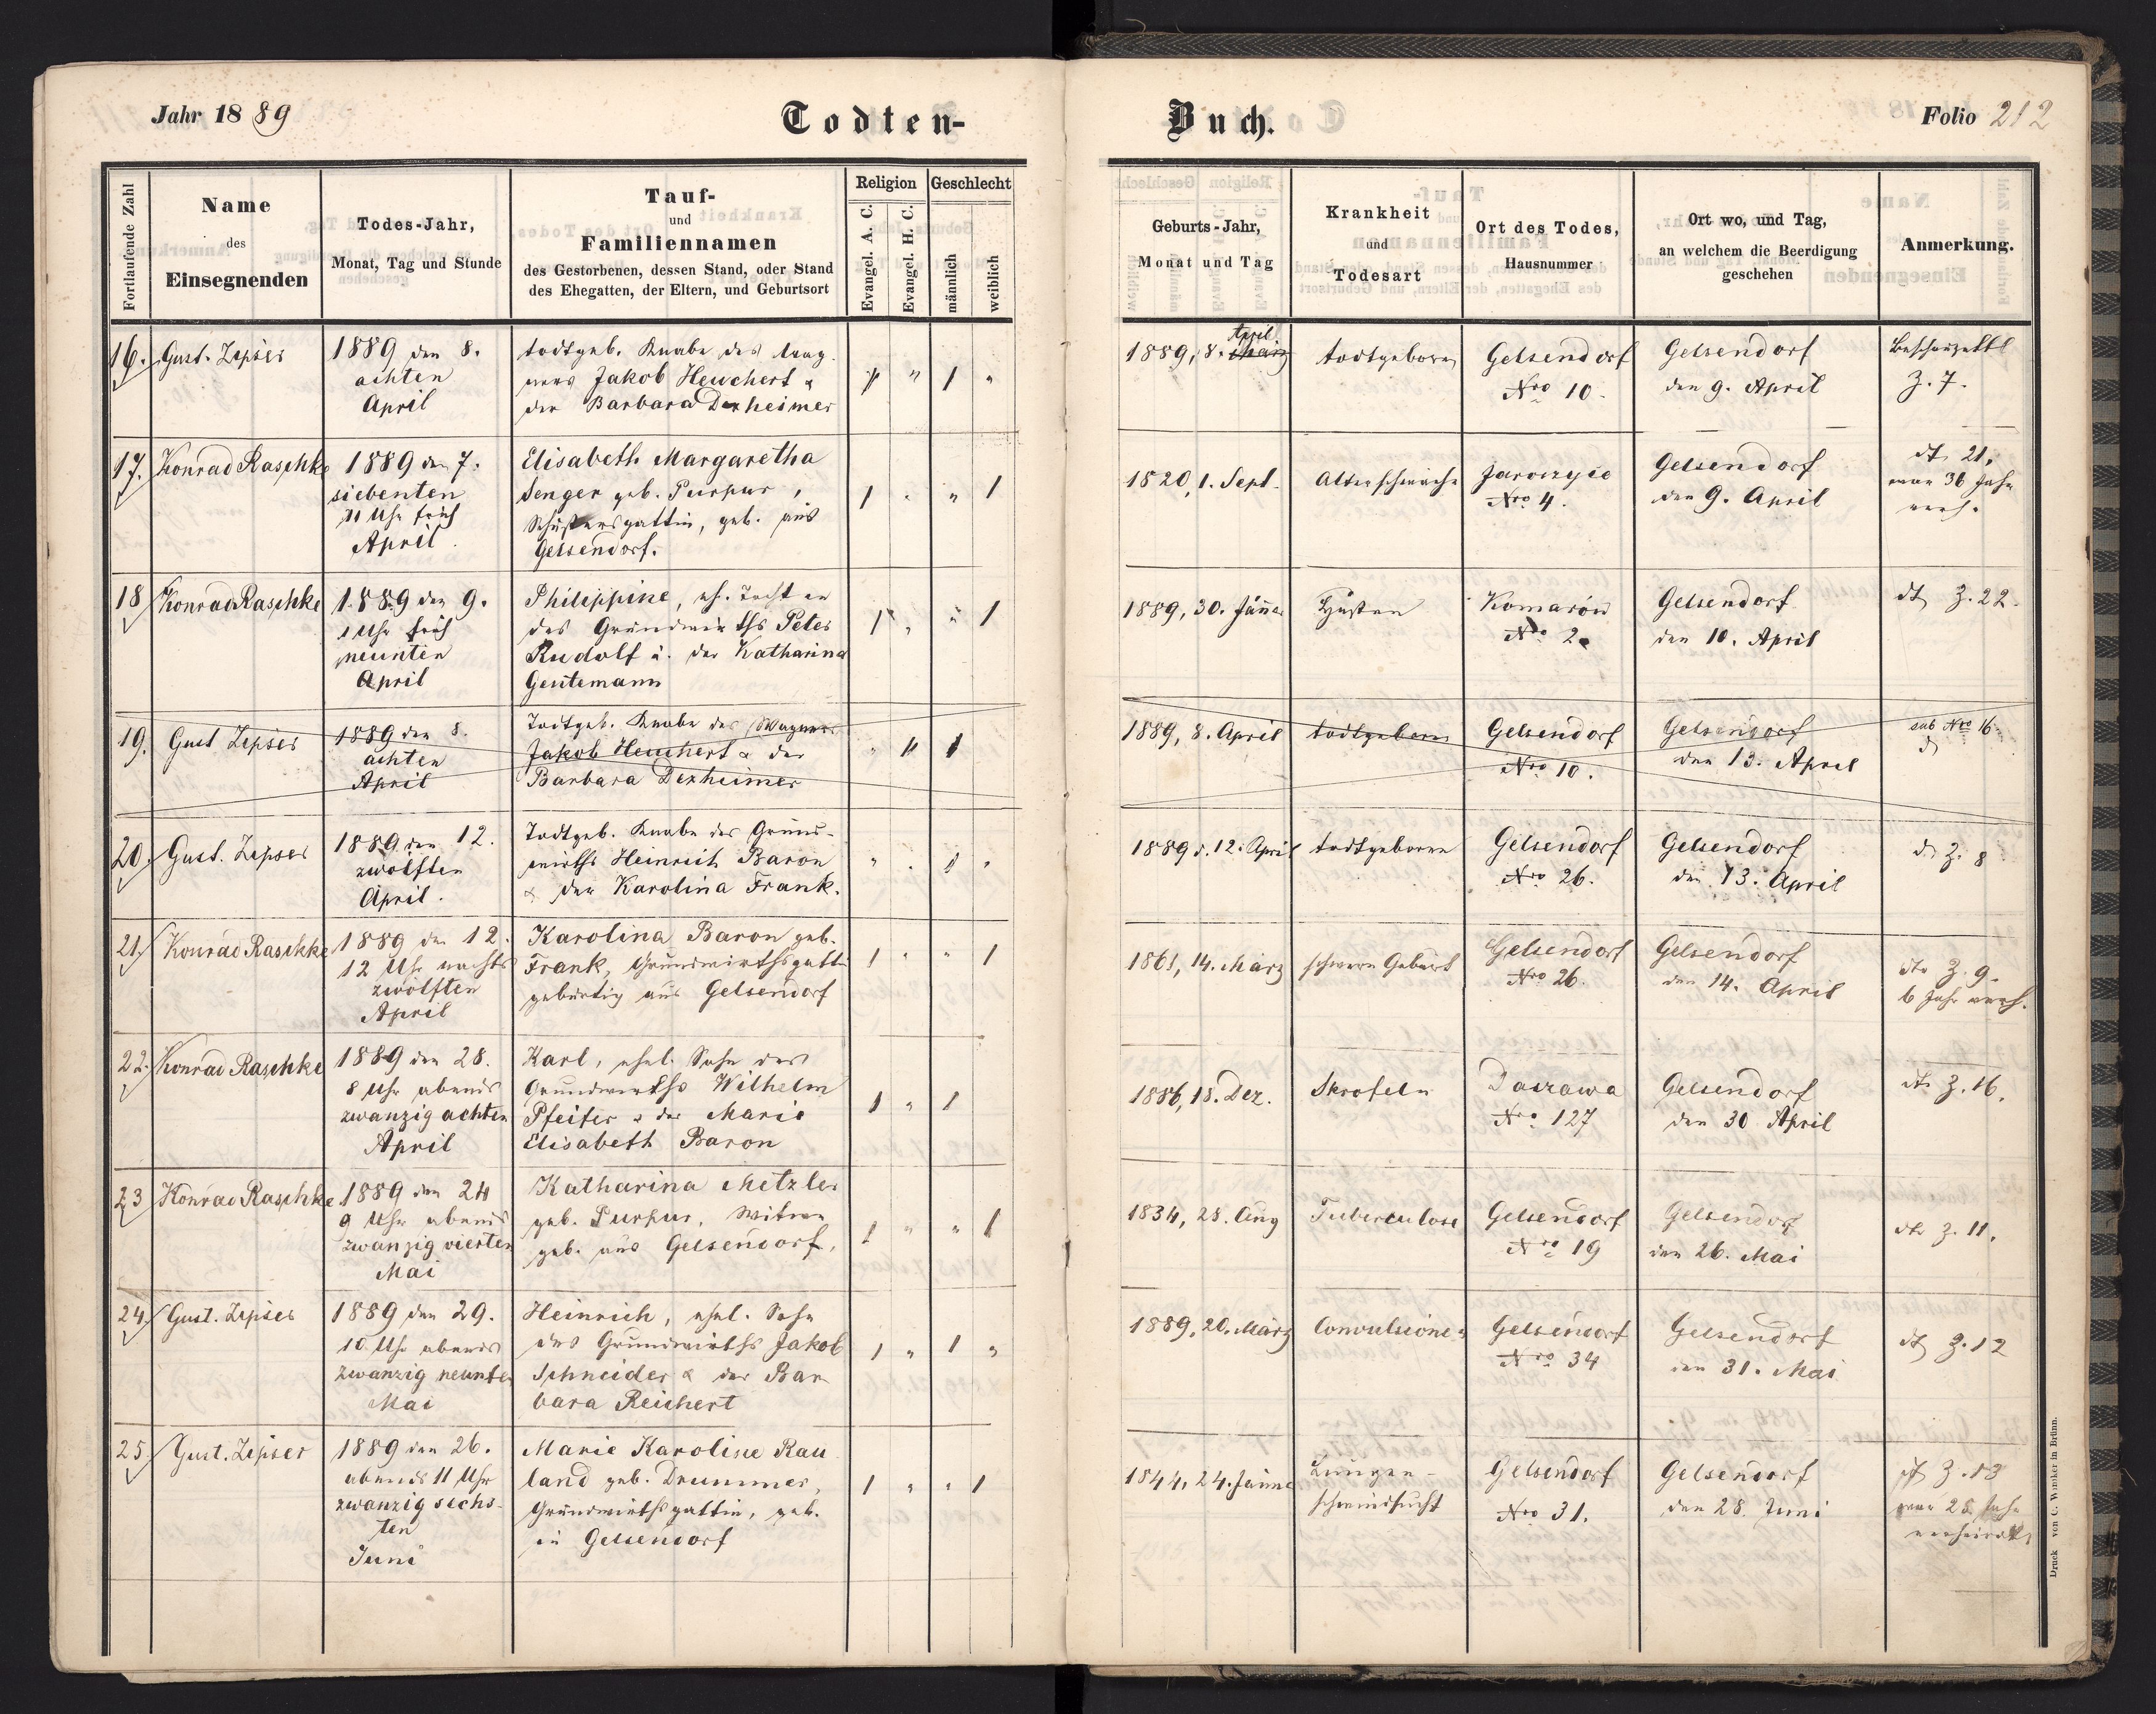 Jahr 1889
Todten-
Buch.
Folio 212
Fortlaufende Zahl
Name
des
Einsegnenden
Todes-Jahr,
Monat, Tag und Stunde
Tauf-
und
Familiennamen
des Gestorbenen, dessen Stand, oder Stand
des Ehegatten, der Eltern, und Geburtsort
Religion
Evangel. A. C.
Evangel. H. C.
Geschlecht
männlich
weiblich
Geburts-Jahr,
Monat und Tag
Krankheit
und
Todesart
Ort des Todes,
Hausnummer
Ort wo, und Tag,
an welchem die Beerdigung
geschehen
Anmerkung.
16. Gust. Zipser
1889 den 8.
achten
April
todtgeb. Knabe des Wag-
ners Jakob Heuchert &
der Barbara Dexheimer
1 " 1 "
1889, 8. März April
todtgeboren
Gelsendorf
Nro 10.
Gelsendorf
den 9. April
Beschauzettl
Z. 7.
17. Konrad Raschke
1889 den 7.
siebenten
11 Uhr früh
April
Elisabeth Margaretha
Senger geb. Purpur,
Schustersgattin, geb. aus
Gelsendorf.
1 " " 1
1820, 1. Sept.
Altersschwäche
Jaroszyce
Nro 4.
Gelsendorf
den 9. April
dto 21,
war 36 Jahr
verh.
18 Konrad Raschke
1889 den 9.
1 Uhr früh
neunten
April
Philippine, eh. Tochter
des Grundwirths Peter
Rudolf u. der Katharina
Gentemann
1 " " 1
1889, 30. Jänner
Husten
Komarów
Nro 2
Gelsendorf
den 10. April
dto Z. 22.
19. Gust Zipser
1889 den 8.
achten
April
Todtgeb. Knabe des Wagners
Jakob Heuchert & der
Barbara Dexheimer
" 1 1
1889, 8. April
todtgeboren
Gelsendorf
Nro 10.
Gelsendorf
den 13. April
sub Nro 16
20. Gust. Zipser
1889 den 12.
zwölften
April.
Todtgeb. Knabe des Grund-
wirths Heinrich Baron
& der Karolina Frank.
" " 1 "
1889 d. 12. April
todtgeboren
Gelsendorf
Nro 26.
Gelsendorf
den 13. April
dto Z. 8
21. Konrad Raschke
1889 den 12.
12 Uhr nachts
zwölften
April
Karolina Baron geb.
Frank, Grundwirthsgattin
gebürtig aus Gelsendorf
1 " " 1
1861, 14. März
schwere Geburt
Gelsendorf
Nro 26.
Gelsendorf
den 14. April
dto Z. 9.
6 Jahr verh.
22. Konrad Raschke
1889 den 28.
8 Uhr abends
zwanzig achten
April
Karl, ehel. Sohn des
Grundwirths Wilhelm
Pfeifer & der Marie
Elisabeth Baron
1 " 1
1886, 18. Dez.
Skrofeln
Daszawa
Nro 127
Gelsendorf
den 30 April
dto Z. 16.
23 Konrad Raschke
1889 den 24
9 Uhr abends
zwanzig vierten
Mai
Katharina Metzler
geb. Purpur, Witwe
geb. aus Gelsendorf,
1 " " 1
1834, 28. Aug
Tuberculose
Gelsendorf
Nro 19
Gelsendorf
den 26. Mai
dto Z. 11.
24. Gust. Zipser
1889 den 29.
10 Uhr abends
zwanzig neunten
Mai
Heinrich, ehel. Sohn
des Grundwirths Jakob
Schneider & der Bar-
bara Reichert
1 " 1 "
1889, 20. März
Convulsionen
Gelsendorf
Nro 34
Gelsendorf
den 31. Mai
dto Z. 12
25. Gust. Zipser
1889 den 26.
abends 11 Uhr
zwanzig sechs-
ten
Juni
Marie Karoline Rau
land geb. Drummer,
Grundwirthsgattin, geb.
in Gelsendorf
1 " " 1
1844, 24. Jänner
Lungen-
schwindsucht
Gelsendorf
Nro 31.
Gelsendorf
den 28. Juni
dto Z. 13
war 28 Jahr
verheirat.
Druck von C. Winiker in Brünn.